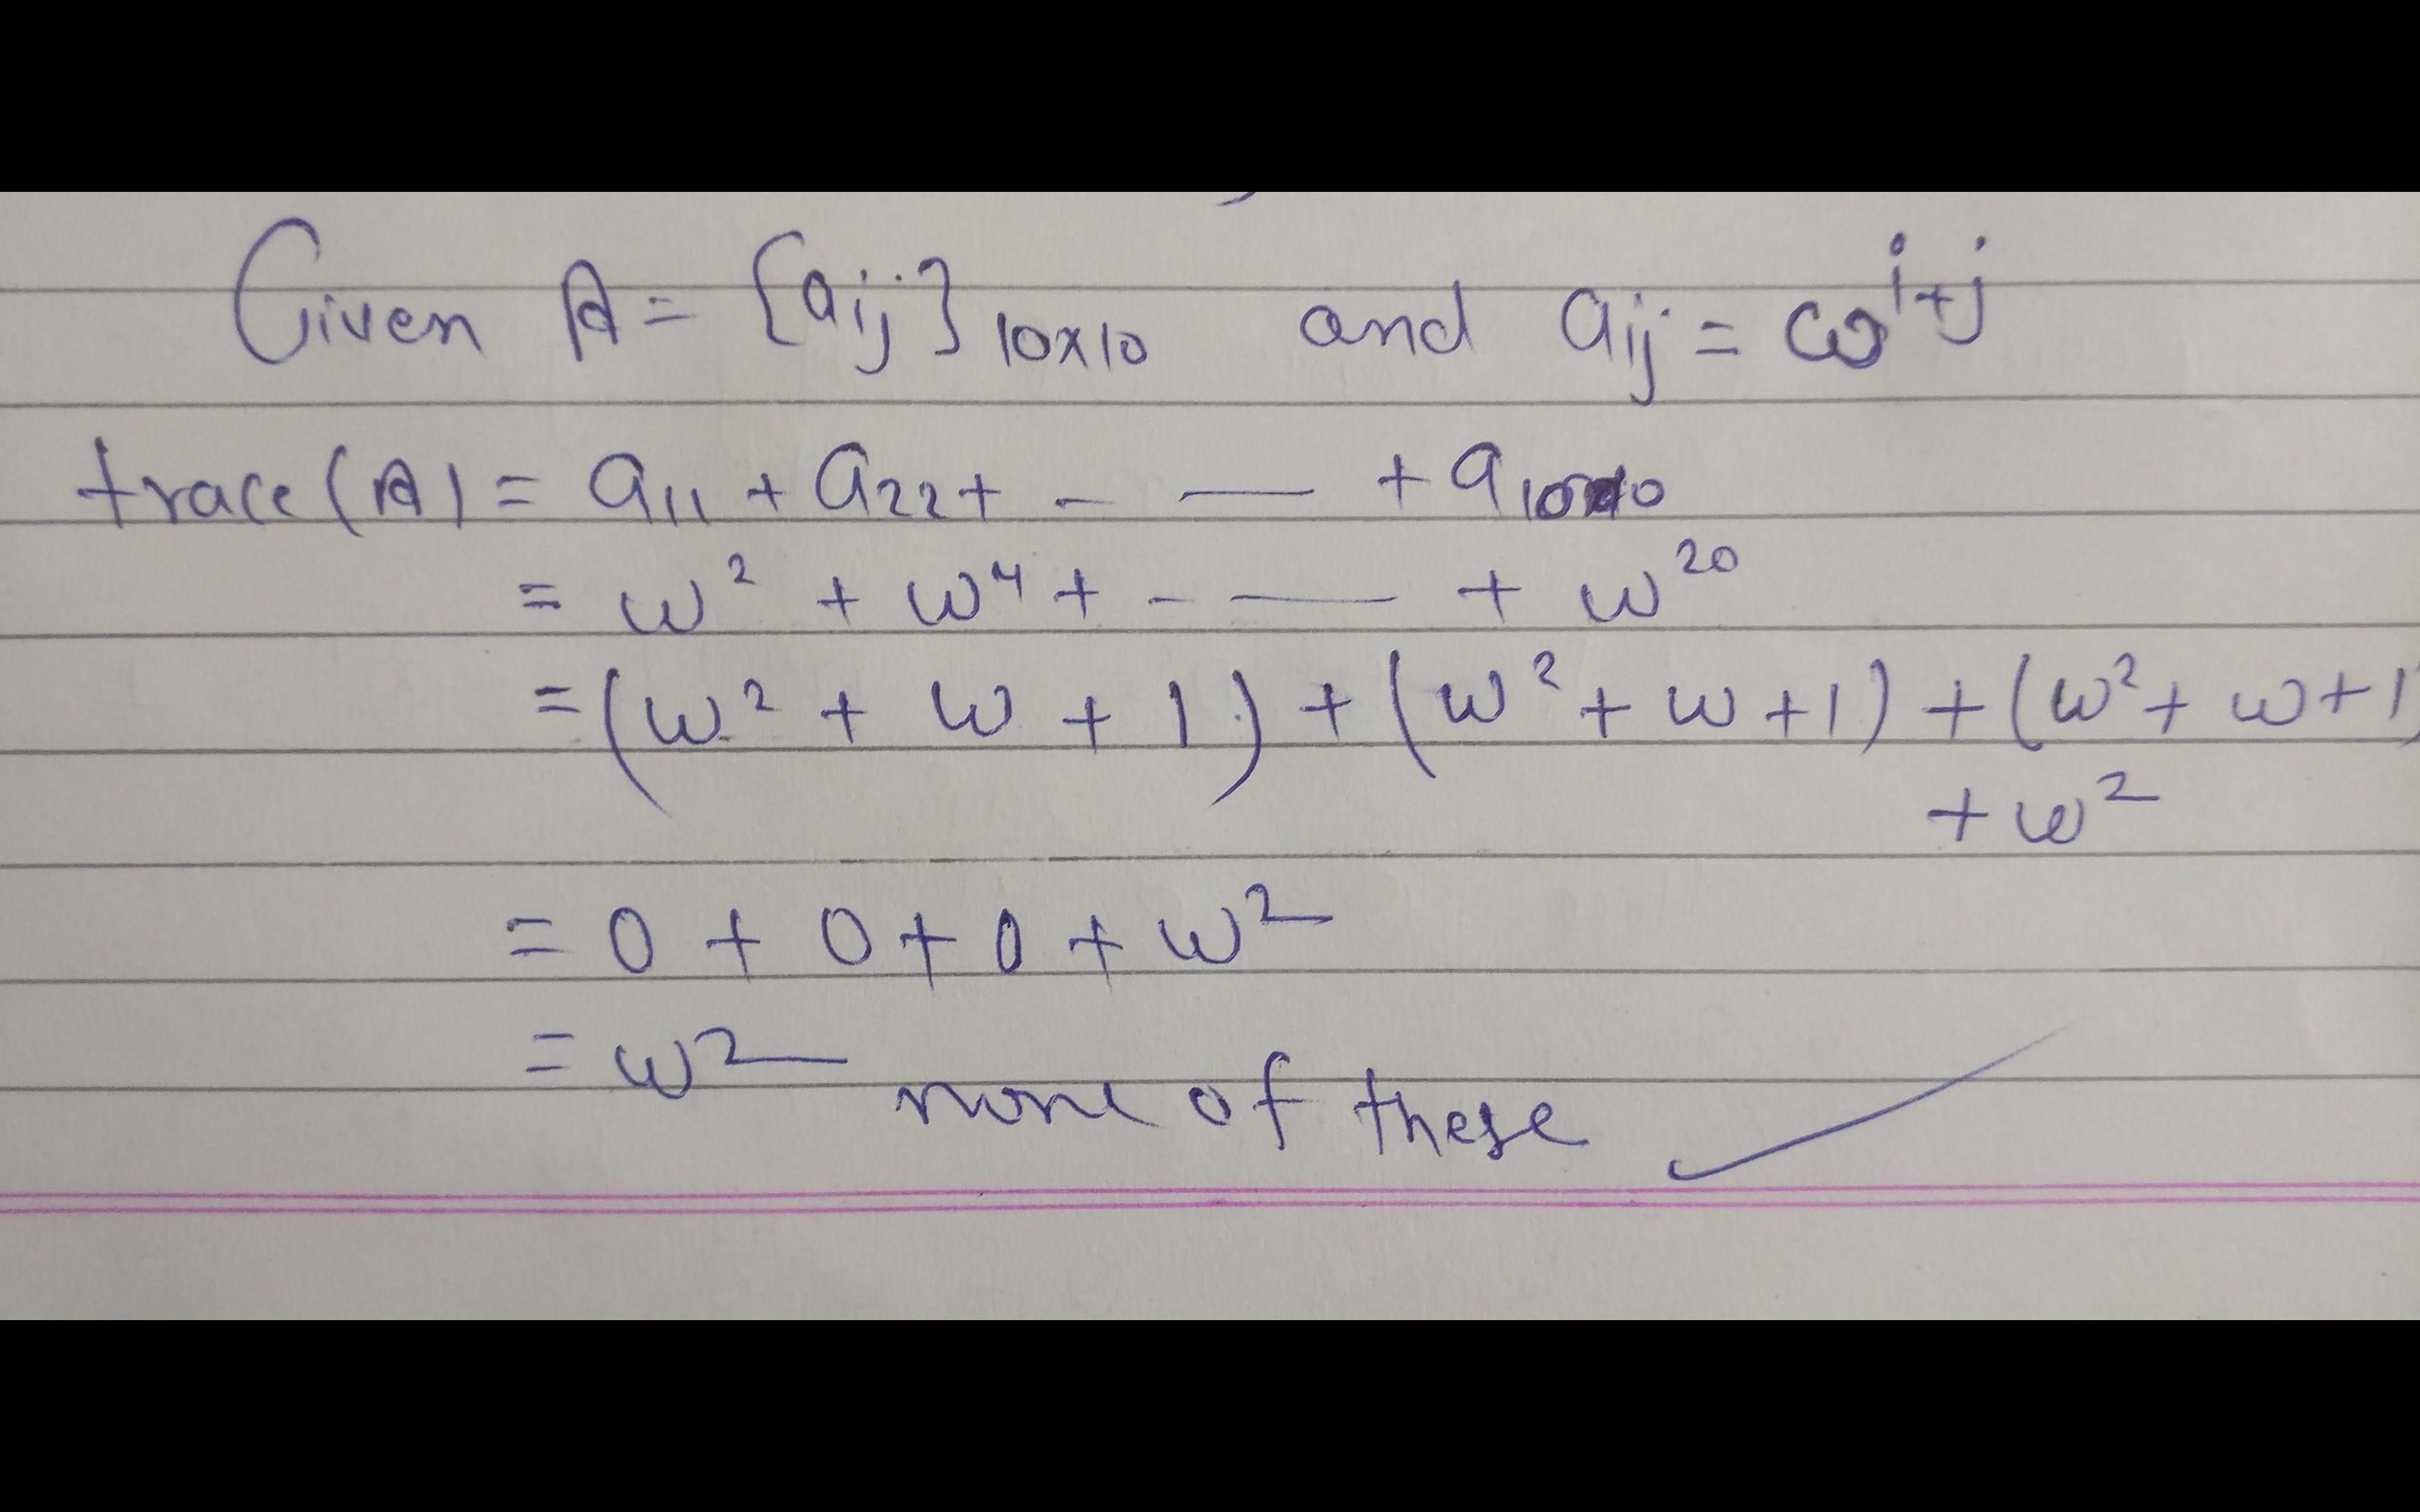 Given A = {aij}10×10 and aij = ω^i+j
trace(A) = a11 + a22 + - — + a1010
= ω² + ω⁴ + - — + ω²⁰
= (ω² + ω + 1) + (ω² + ω + 1) + (ω² + ω + 1)
+ ω²
= 0 + 0 + 0 + ω²
= ω²
none of these ✓